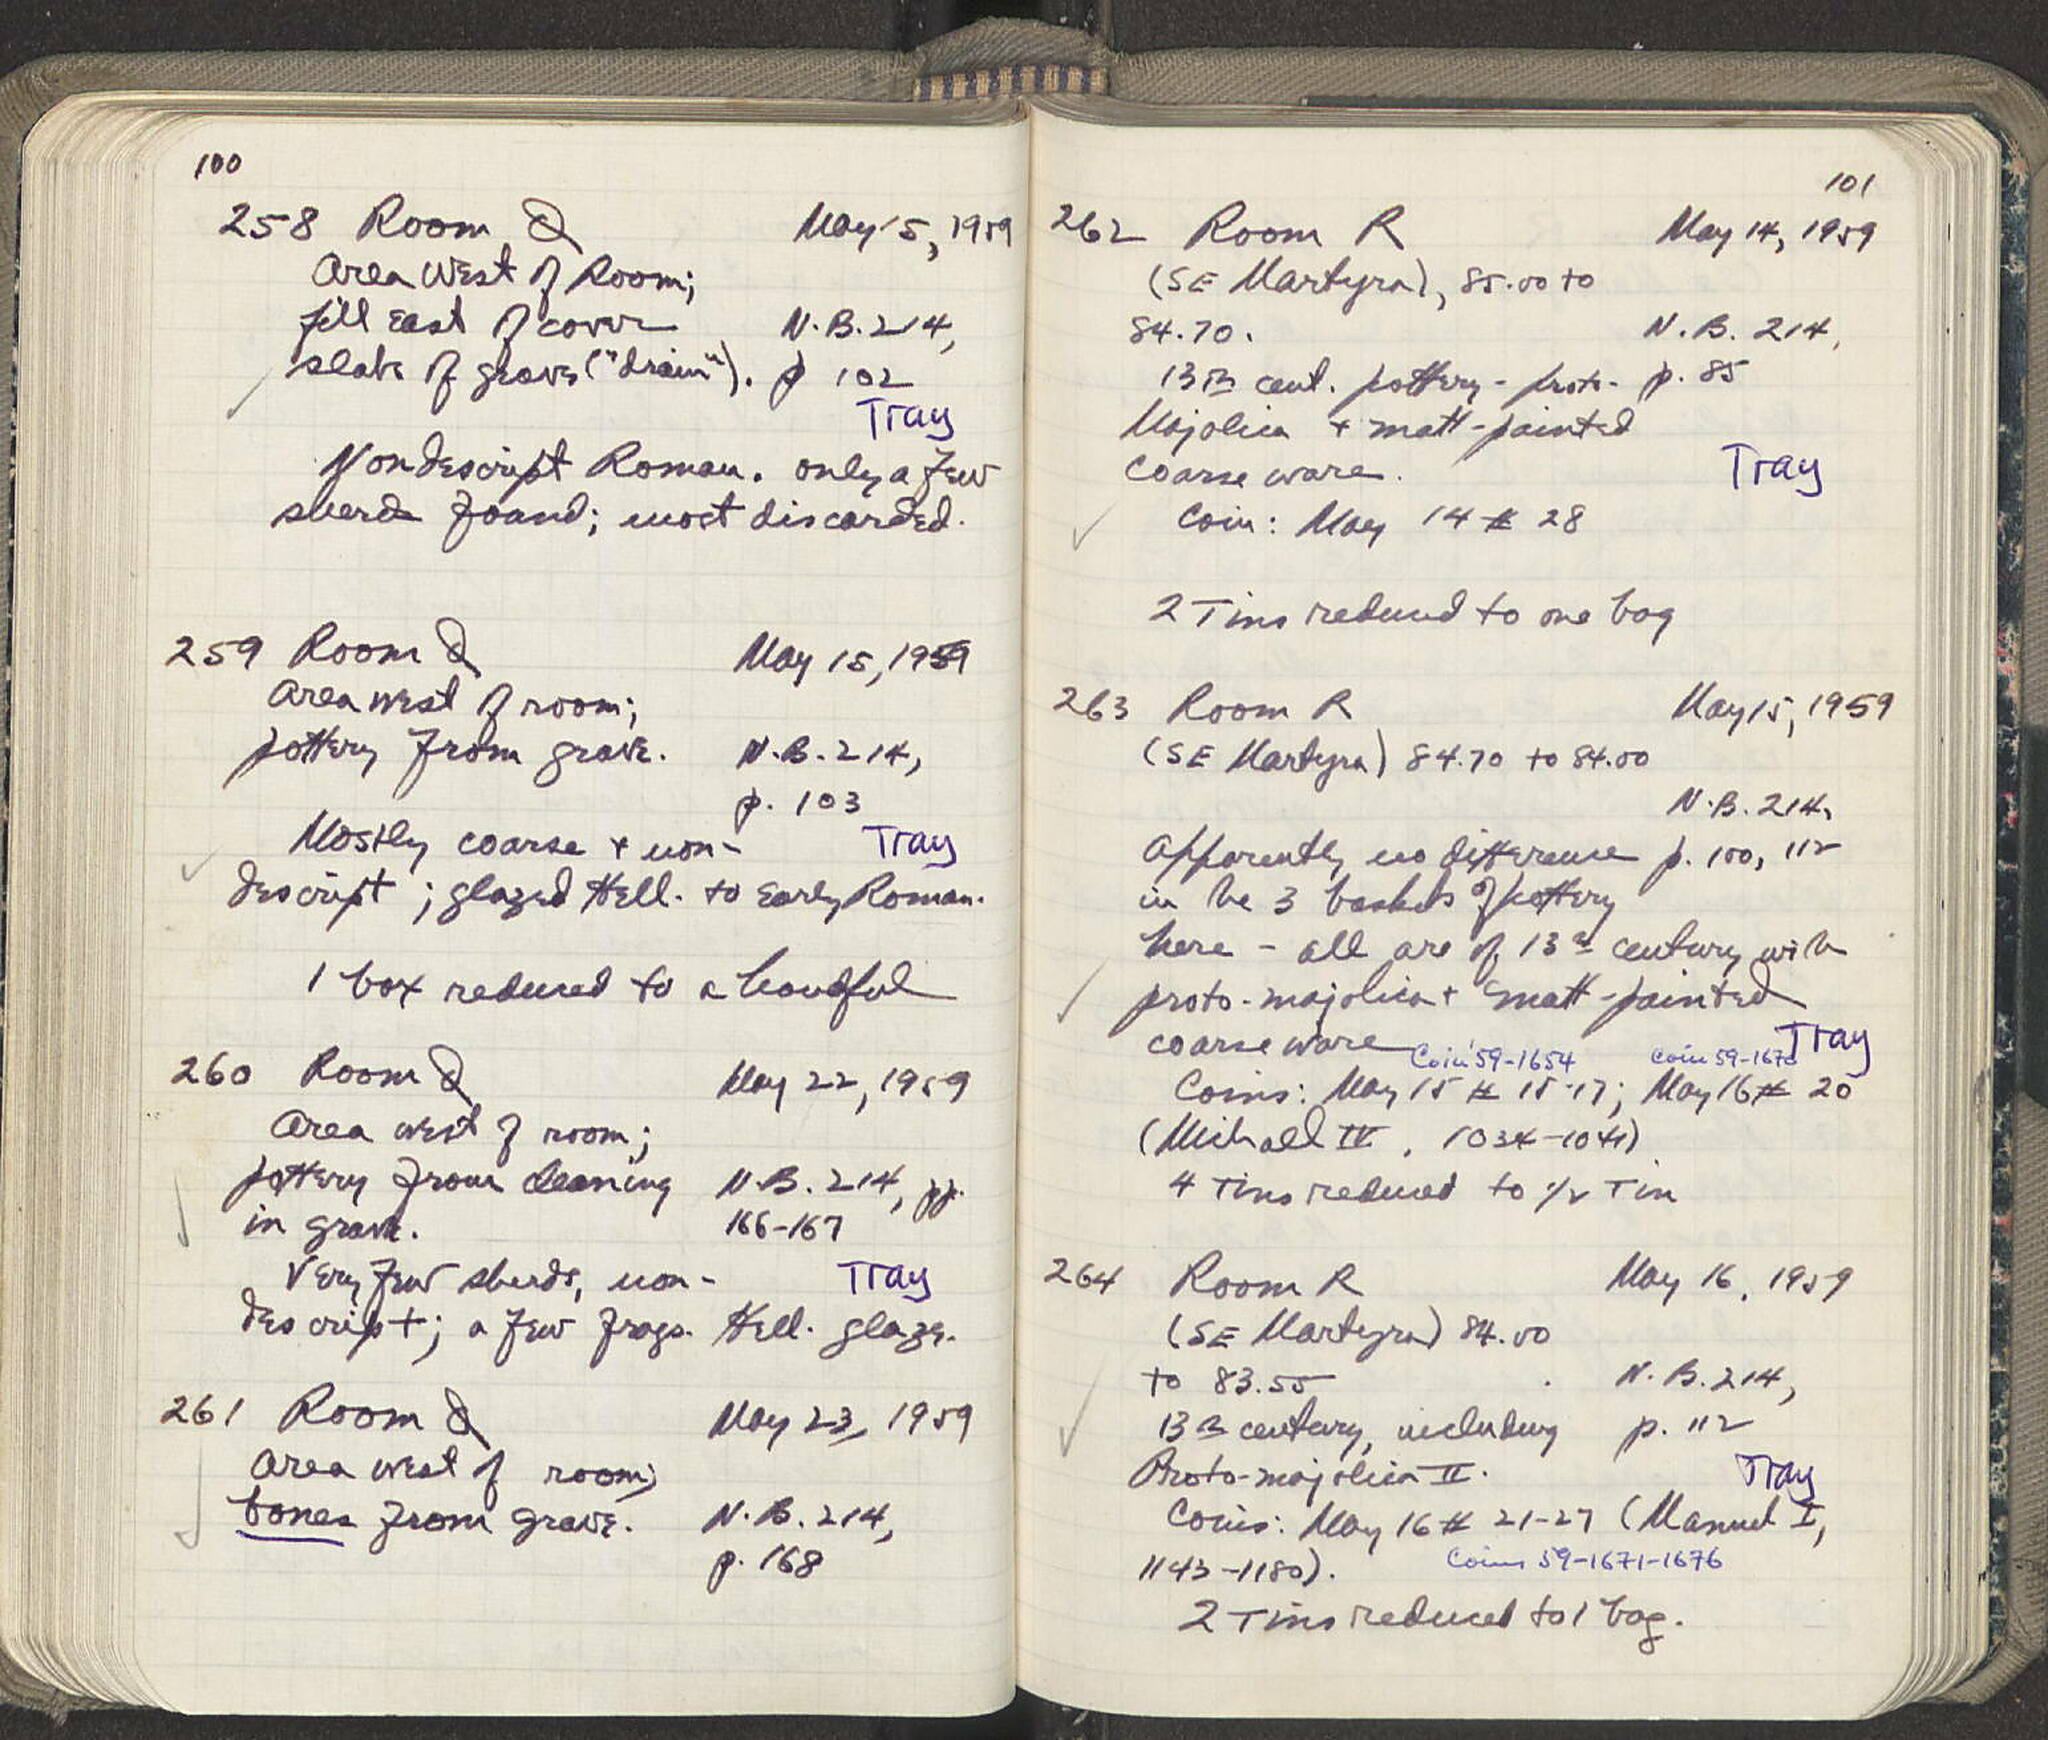 100
258 Room Q May 15, 1959
Area West of Room;
fill east of cover N.B. 214,
slabs of grave ("drain"). p 102
Tray
Nondescript Roman. only a few
sherds found; most discarded.
259 Room Q May 15, 1959
Area west of room;
pottery from grave. N.B. 214,
p. 103
Mostly coarse + non- Tray
descript; glazed Hell. to Early Roman.
1 box reduced to a handful
260 Room Q May 22, 1959
Area west of room;
pottery from cleaning N.B. 214, pp.
in grave. 166-167
Very few sherds, non- Tray
descript; a few frags. Hell. glaze.
261 Room Q May 23, 1959
Area west of room;
bones from grave. N.B. 214,
p. 168
101
262 Room R May 14, 1959
(SE Martyra), 85.00 to
84.70. N.B. 214,
13th cent. pottery - proto- p. 85
Majolica + matt-painted
coarse ware. Tray
Coin: May 14 # 28
2 Tins reduced to one bag
263 Room R May 15, 1959
(SE Martyra) 84.70 to 84.00
N.B. 214,
Apparently no difference p. 100, 112
in the 3 baskets of pottery
here - all are of 13th century with
proto-majolica + matt-painted
coarse ware Tray
Coin 59-1654 Coin 59-1670
Coins: May 15 # 15-17; May 16 # 20
(Michael IV, 1034-1041)
4 Tins reduced to 1/2 Tin
264 Room R May 16, 1959
(SE Martyra) 84.00
to 83.55 N.B. 214,
13th century, including p. 112
Proto-majolica II. Tray
Coins: May 16 # 21-27 (Manuel I,
1143-1180). Coins 59-1671-1676
2 Tins reduced to 1 bag.